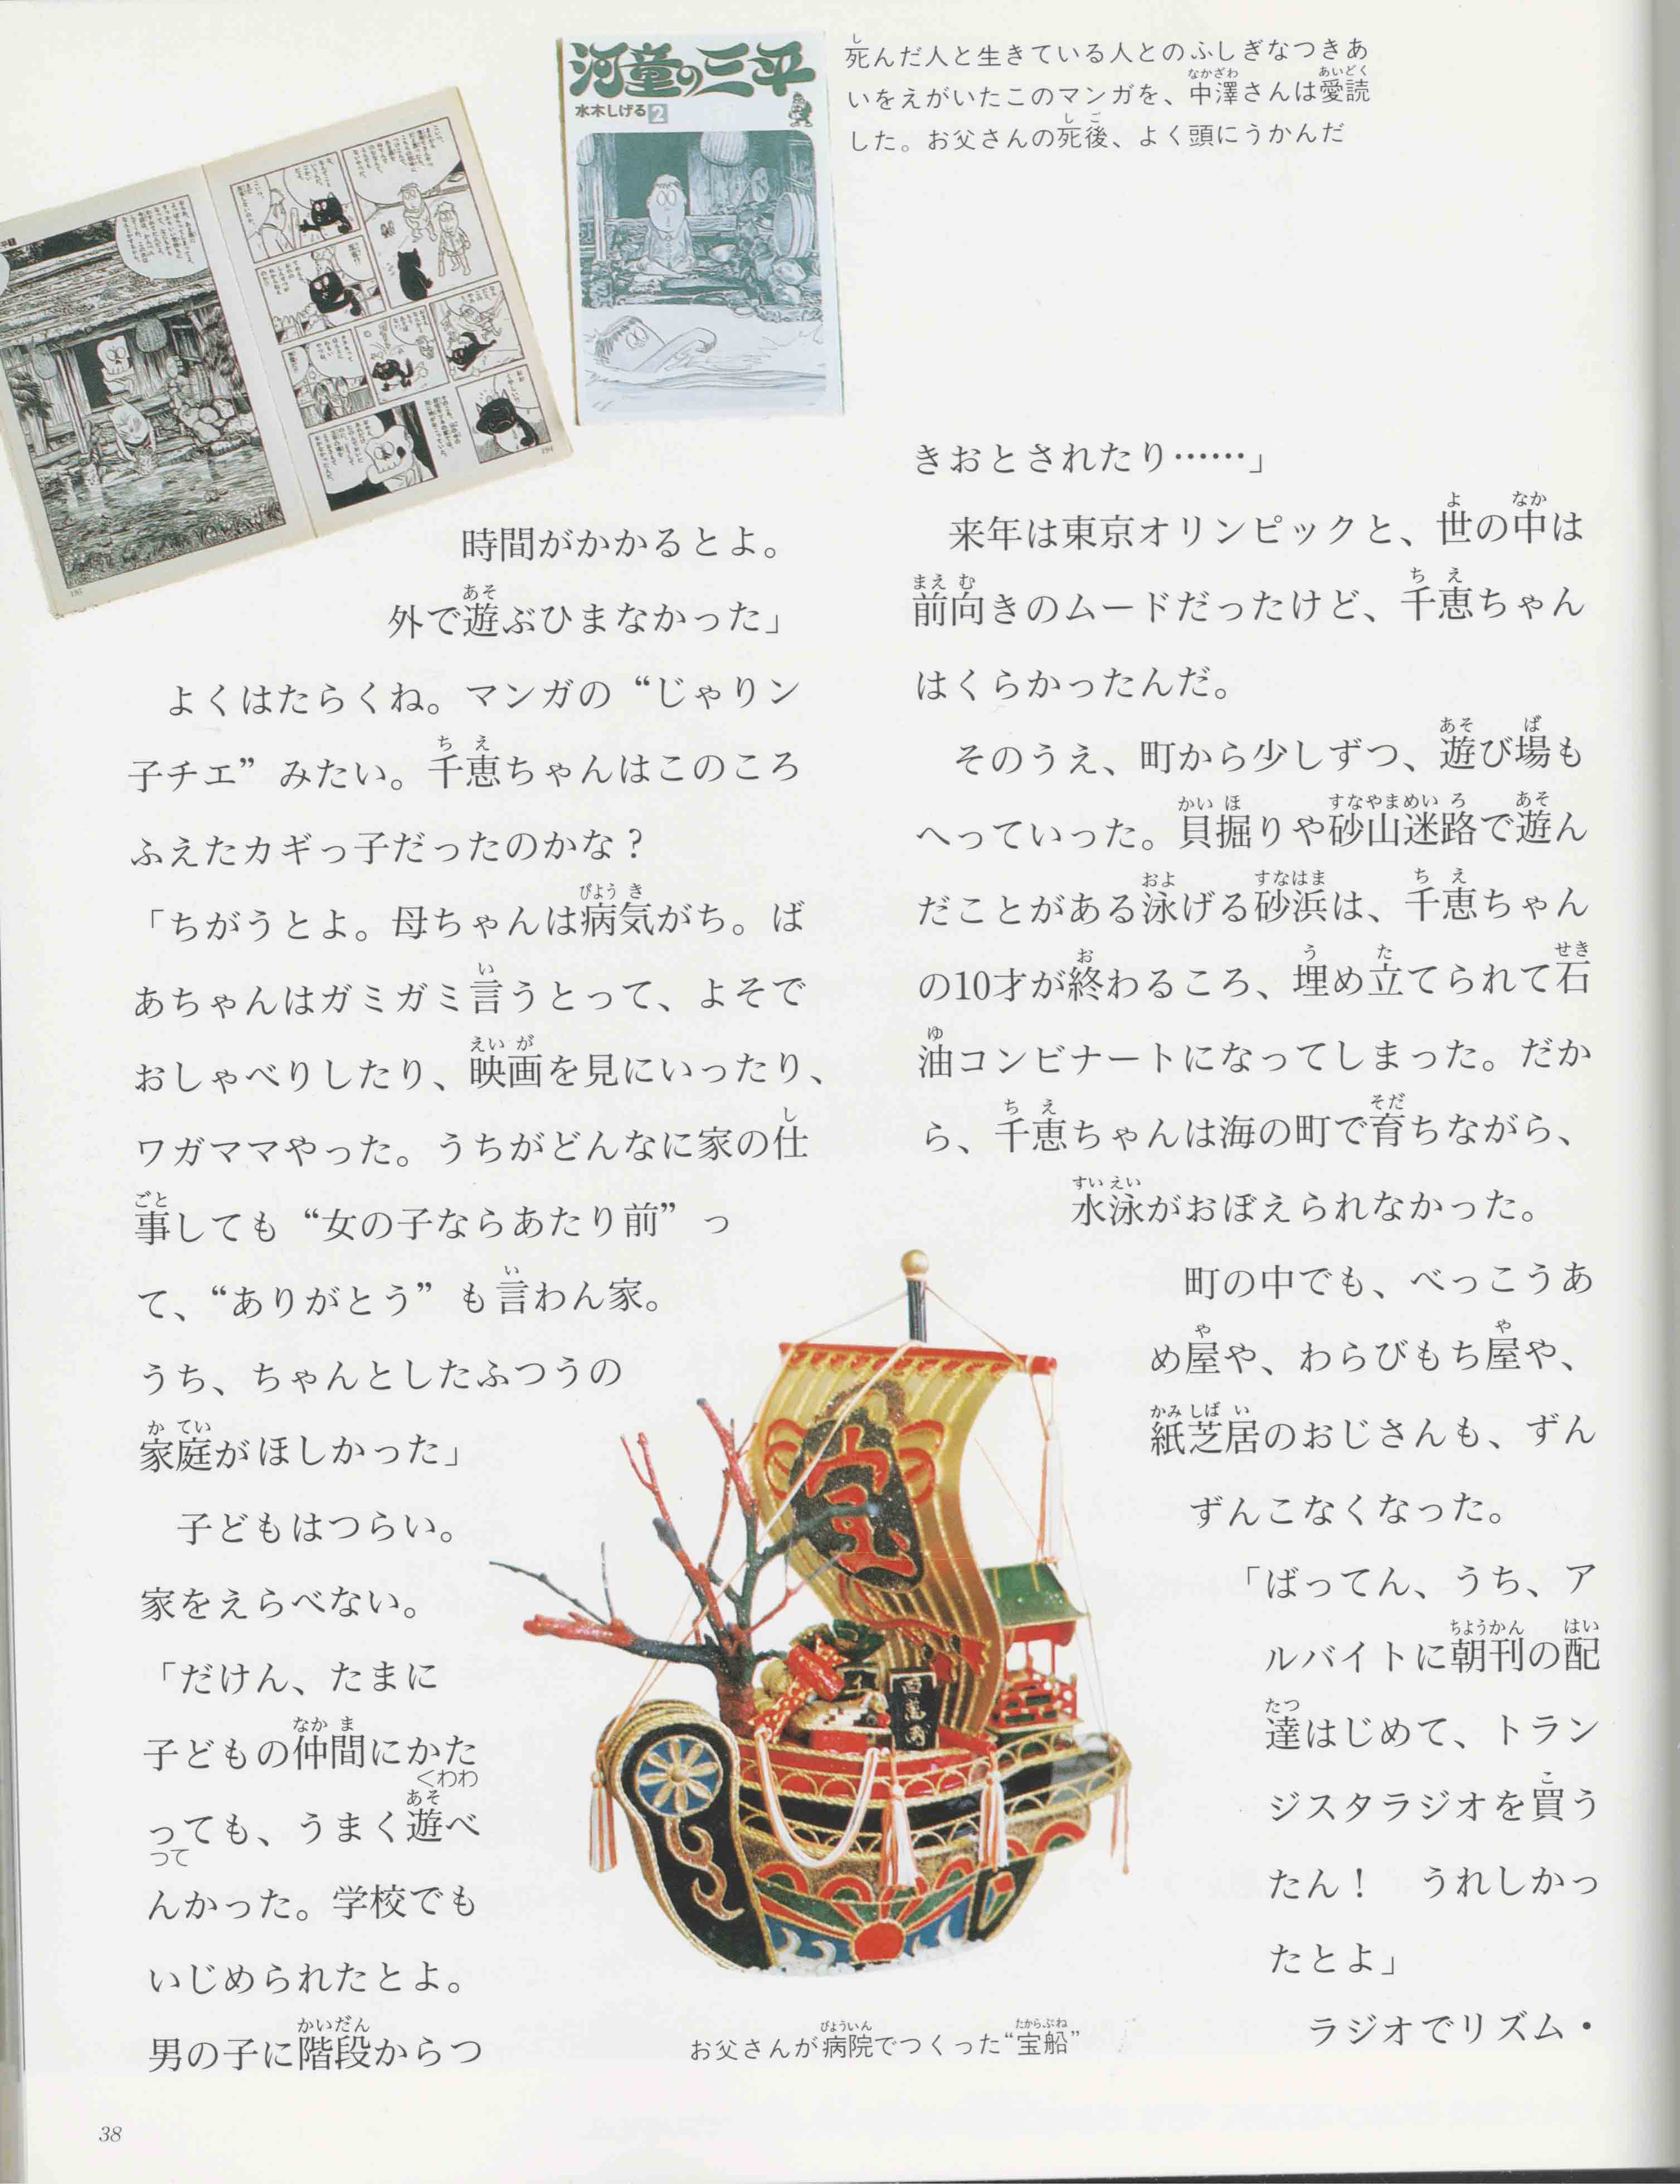 河童の三平
水木しげる2
死んだ人と生きている人とのふしぎなつきあ
いをえがいたこのマンガを、中澤さんは愛読
した。お父さんの死後、よく頭にうかんだ
194
195
時間がかかるとよ。
外で遊ぶひまなかった」
よくはたらくね。マンガの“じゃりン
子チエ”みたい。千恵ちゃんはこのころ
ふえたカギっ子だったのかな？
「ちがうとよ。母ちゃんは病気がち。ば
あちゃんはガミガミ言うとって、よそで
おしゃべりしたり、映画を見にいったり、
ワガママやった。うちがどんなに家の仕
事しても“女の子ならあたり前”っ
て、“ありがとう”も言わん家。
うち、ちゃんとしたふつうの
家庭がほしかった」
子どもはつらい。
家をえらべない。
「だけん、たまに
子どもの仲間にかた
くわわ
っても、うまく遊べ
って
んかった。学校でも
いじめられたとよ。
男の子に階段からつ
きおとされたり……」
来年は東京オリンピックと、世の中は
前向きのムードだったけど、千恵ちゃん
はくらかったんだ。
そのうえ、町から少しずつ、遊び場も
へっていった。貝掘りや砂山迷路で遊ん
だことがある泳げる砂浜は、千恵ちゃん
の10才が終わるころ、埋め立てられて石
油コンビナートになってしまった。だか
ら、千恵ちゃんは海の町で育ちながら、
水泳がおぼえられなかった。
町の中でも、べっこうあ
め屋や、わらびもち屋や、
紙芝居のおじさんも、ずん
ずんこなくなった。
「ばってん、うち、ア
ルバイトに朝刊の配
達はじめて、トラン
ジスタラジオを買う
たん！　うれしかっ
たとよ」
ラジオでリズム・
宝
百萬両
お父さんが病院でつくった“宝船”
38